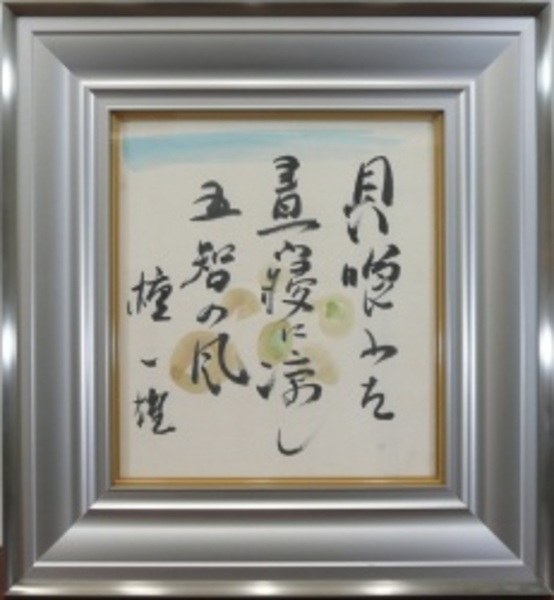 貝喰ふた
晝寝に凉し
五智の風
檀一雄